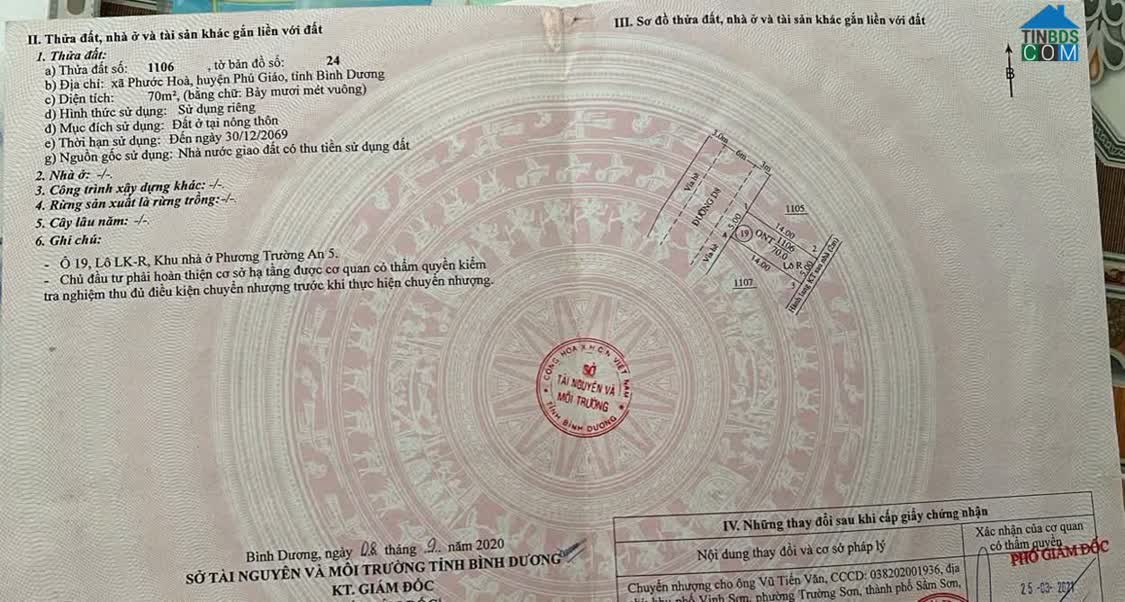 II. Thửa đất, nhà ở và tài sản khác gắn liền với đất
1. Thửa đất:
a) Thửa đất số: 1106 , tờ bản đồ số: 24
b) Địa chỉ: xã Phước Hoà, huyện Phú Giáo, tỉnh Bình Dương
c) Diện tích: 70m², (bằng chữ: Bảy mươi mét vuông)
d) Hình thức sử dụng: Sử dụng riêng
đ) Mục đích sử dụng: Đất ở tại nông thôn
e) Thời hạn sử dụng: Đến ngày 30/12/2069
g) Nguồn gốc sử dụng: Nhà nước giao đất có thu tiền sử dụng đất
2. Nhà ở: -/-.
3. Công trình xây dựng khác: -/-.
4. Rừng sản xuất là rừng trồng:-/-.
5. Cây lâu năm: -/-.
6. Ghi chú:
- Ô 19, Lô LK-R, Khu nhà ở Phương Trường An 5.
- Chủ đầu tư phải hoàn thiện cơ sở hạ tầng được cơ quan có thẩm quyền kiểm
tra nghiệm thu đủ điều kiện chuyển nhượng trước khi thực hiện chuyển nhượng.
Bình Dương, ngày 08 tháng 9 năm 2020
SỞ TÀI NGUYÊN VÀ MÔI TRƯỜNG TỈNH BÌNH DƯƠNG
KT. GIÁM ĐỐC
CỘNG HÒA X.H.C.N VIỆT NAM
SỞ
TÀI NGUYÊN VÀ
MÔI TRƯỜNG
TỈNH BÌNH DƯƠNG
III. Sơ đồ thửa đất, nhà ở và tài sản khác gắn liền với đất
TINBDS
COM
B
3.0m
6m
3m
Vỉa hè
ĐƯỜNG D8
Vỉa hè
1
5.00
4
19
ONT
1106
70.0
14.00
14.00
1105
2
Lô R
5.00
3
1107
Hành lang KT sau nhà (2m)
IV. Những thay đổi sau khi cấp giấy chứng nhận
Nội dung thay đổi và cơ sở pháp lý
Xác nhận của cơ quan
có thẩm quyền
PHÓ GIÁM ĐỐC
Chuyển nhượng cho ông Vũ Tiến Văn, CCCD: 038202001936, địa
khu phố Vinh Sơn, phường Trường Sơn, thành phố Sầm Sơn,
25 -03- 2021